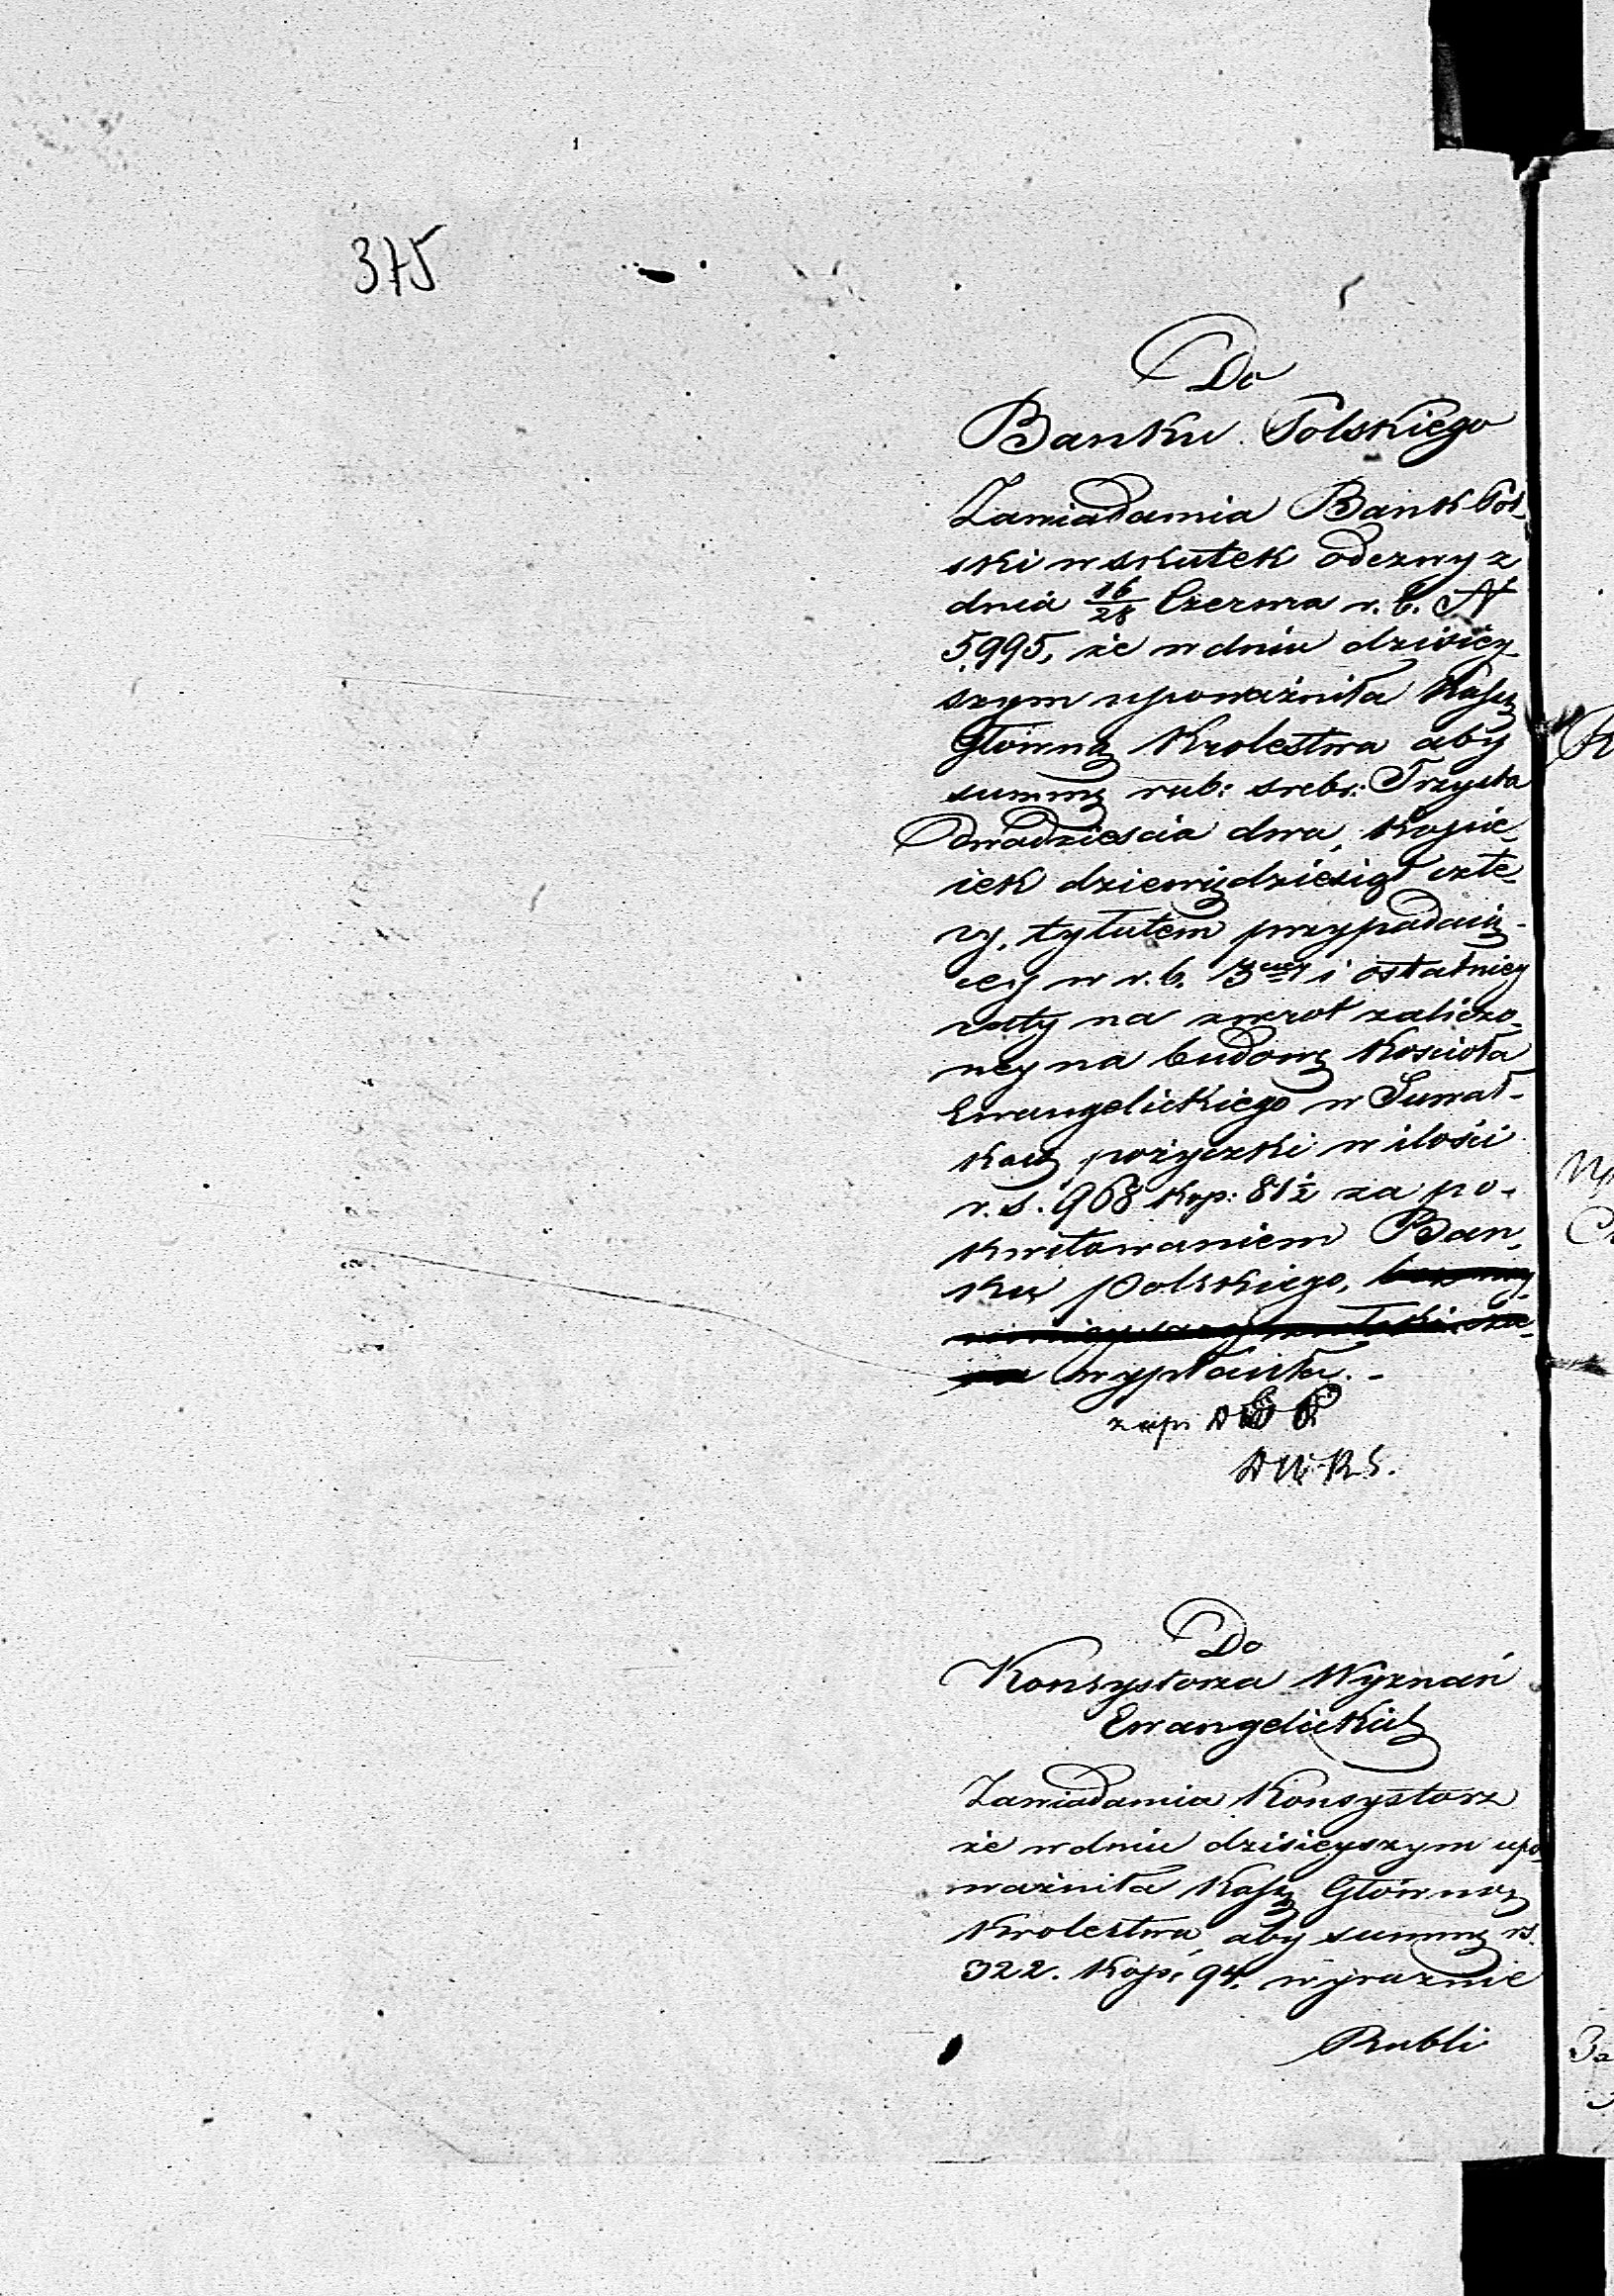 375
Do
Banku Polskiego
Zawiadamia Bank Pol-
ski w skutek odezwy z
dnia 16/28 Czerwca r. b. N
5,995, że w dniu dzisiey-
szym upoważniła Kassę
Główną Krolestwa aby
summę rub: srebr: Trzysta
Dwadzieścia dwa, Kopie-
iek dziewiędziesiąt czte-
ry, tytułem przypadaią-
cey w r. b. 3ciey i ostatniey
raty na zwrot zaliczo-
ney na budowę Kościoła
Ewangelickiego w Suwał-
kach pożyczki w ilości
r. s. 968 kop: 81½ za po-
kwitowaniem Ban-
ku Polskiego,
wypłaciła. -
Do
Konsystorza Wyznań
Ewangelickich
Zawiadamia Konsystorz
że w dniu dzisieyszym upo-
ważniła Kassę Główną
Krolestwa, aby summę rs.
322. Kop: 94, wyraźnie
Rubli